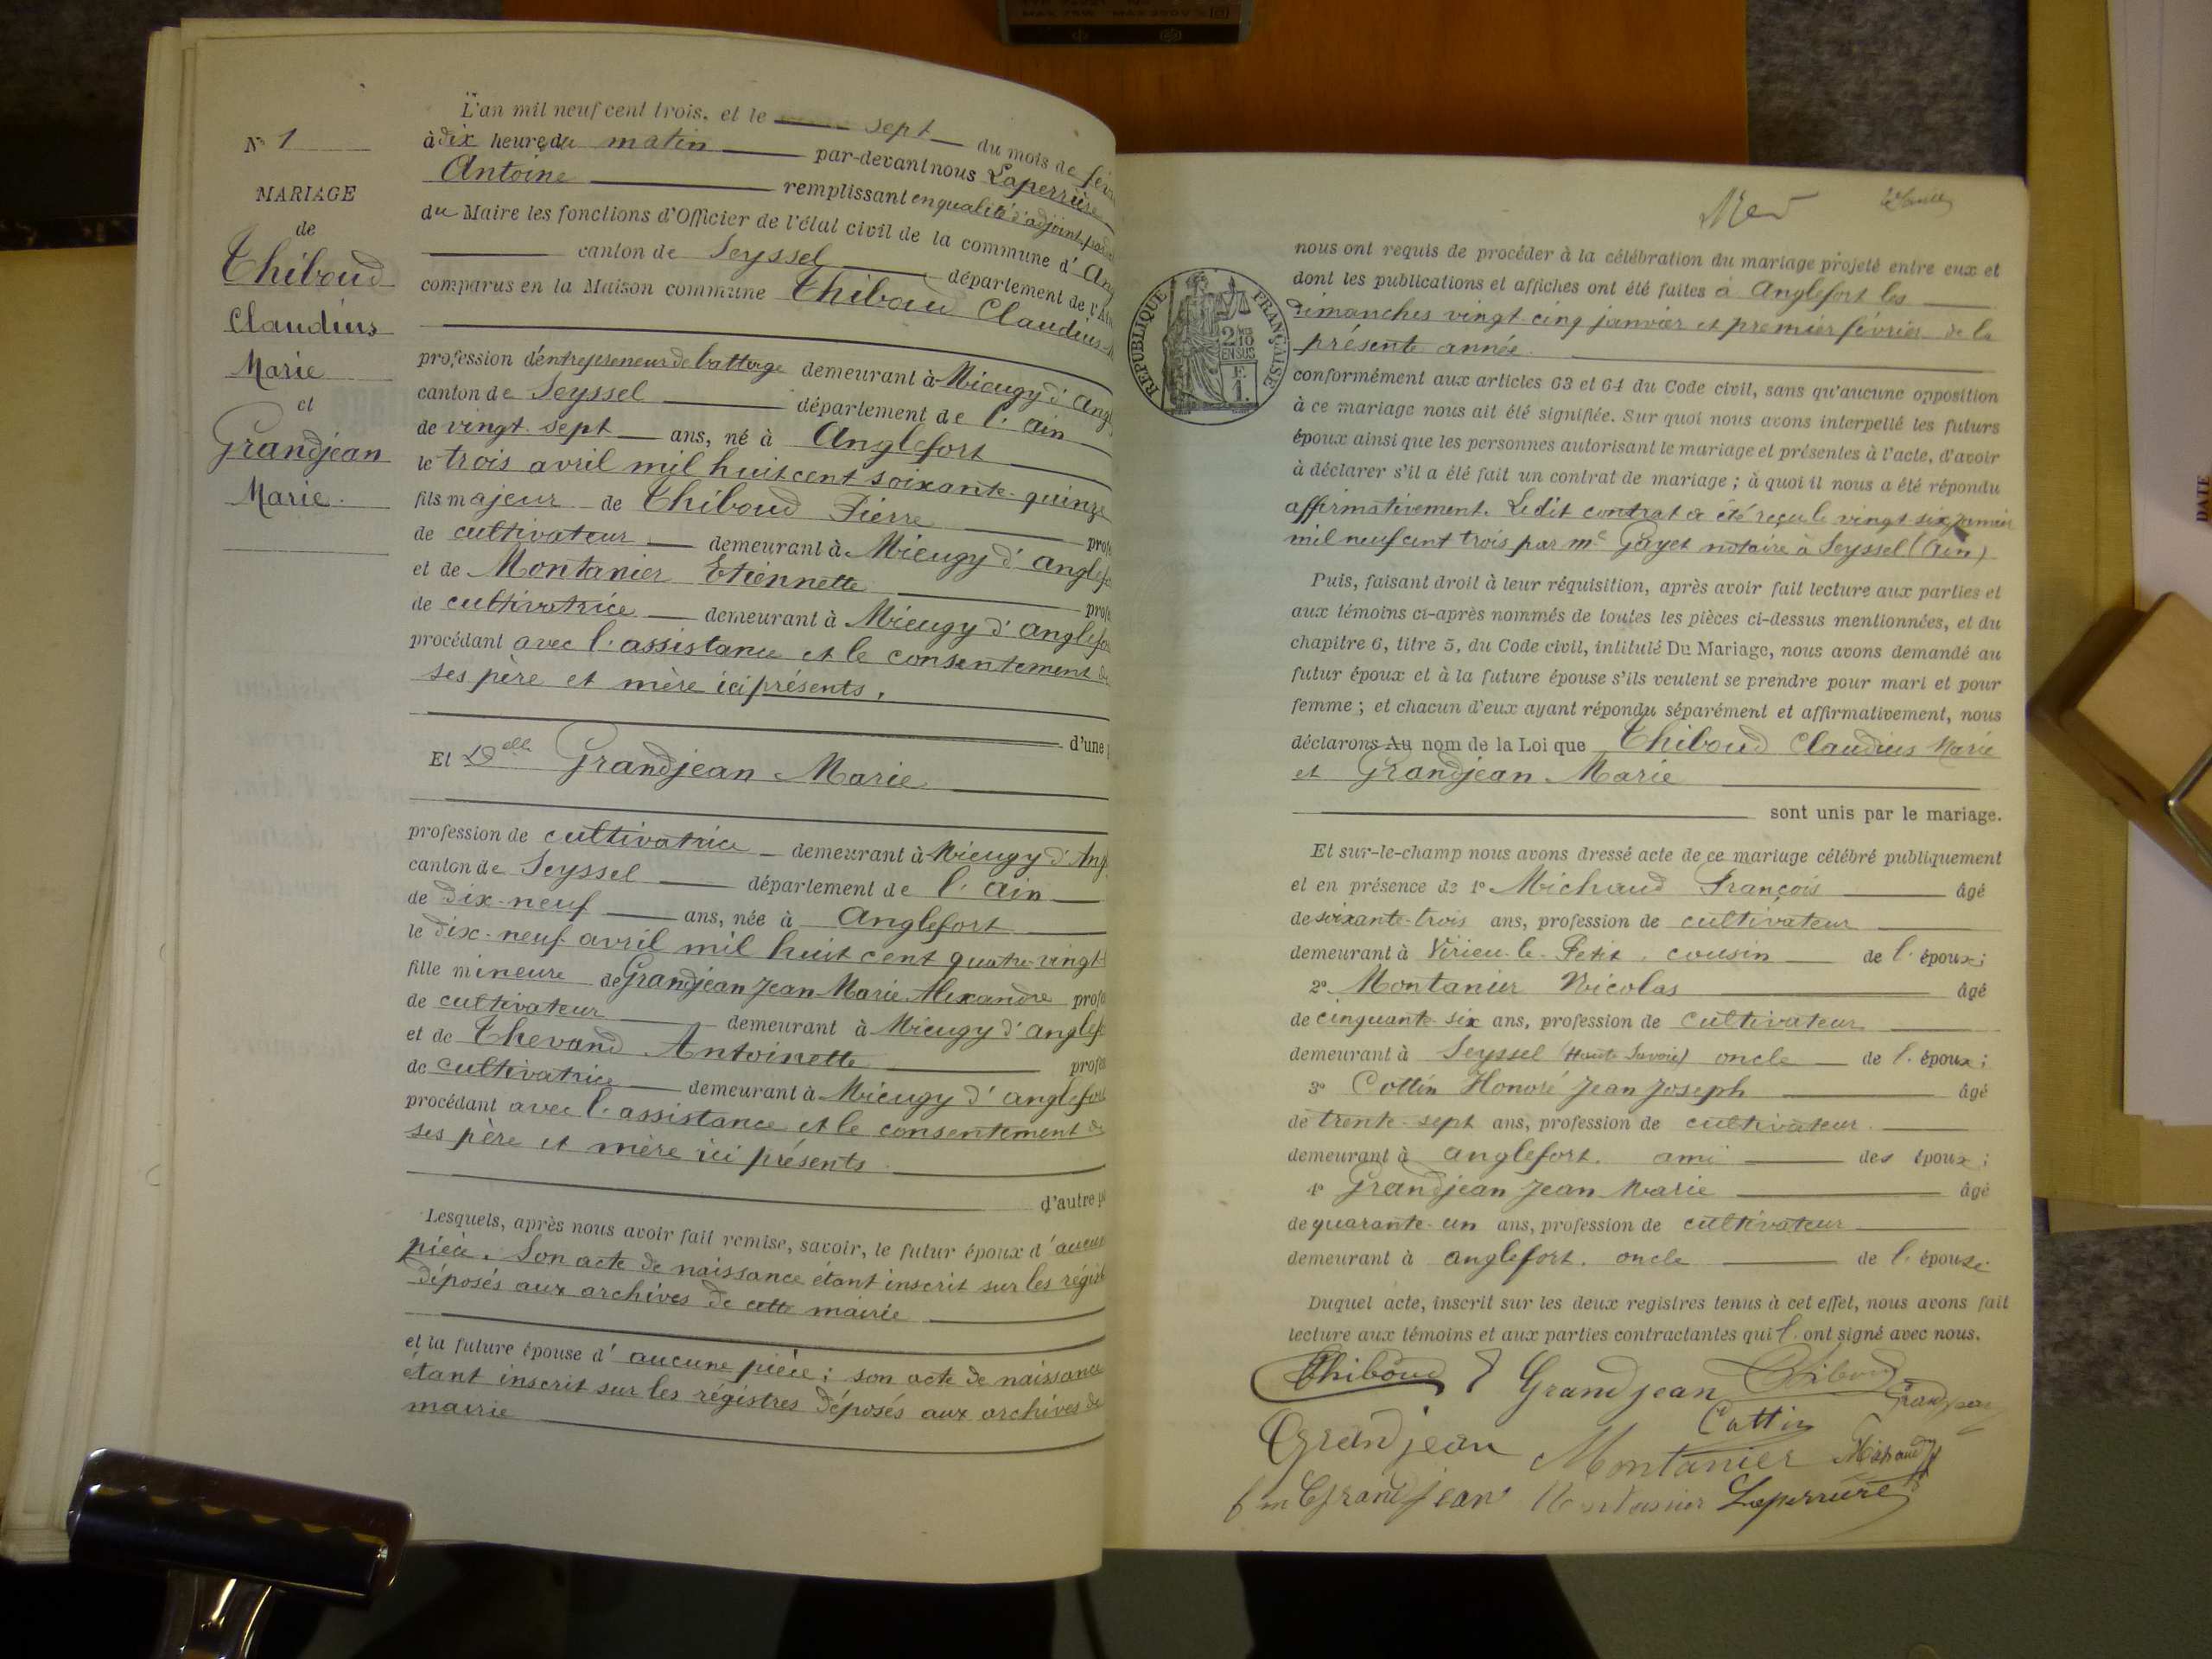 N° 1
MARIAGE
de
Thiboud
Claudius
Marie
et
Grandjean
Marie.
L'an mil neuf cent trois, et le sept du mois de
à dix heure du matin par-devant nous Laperrière
Antoine remplissant en qualité d'adjoint
du Maire les fonctions d'Officier de l'état civil de la commune d'
canton de Seyssel département de l'
comparus en la Maison commune Thiboud Claudius
profession d'entrepreneur de battage demeurant à Mieugy d'
canton de Seyssel département de l'Ain
de vingt-sept ans, né à Anglefort
le trois avril mil huit cent soixante-quinze
fils majeur de Thiboud Pierre
de cultivateur demeurant à Mieugy d'
et de Montanier Etiennette
de cultivatrice demeurant à Mieugy d'
procédant avec l'assistance et le consentement de
ses père et mère ici présents.
d'une
Et Delle Grandjean Marie
profession de cultivatrice demeurant à Mieugy d'
canton de Seyssel département de l'Ain
de dix-neuf ans, née à Anglefort
le dix-neuf avril mil huit cent quatre-vingt
fille mineure de Grandjean Jean Marie Alexandre
de cultivateur demeurant à Mieugy d'
et de Thevand Antoinette
de cultivatrice demeurant à Mieugy d'anglefort
procédant avec l'assistance et le consentement de
ses père et mère ici présents
d'autre
Lesquels, après nous avoir fait remise, savoir, le futur époux d'
pièce. Son acte de naissance étant inscrit sur les
déposés aux archives de cette mairie
et la future épouse d'aucune pièce ; son acte de naissance
étant inscrit sur les régistres déposés aux archives de
mairie
RÉPUBLIQUE FRANÇAISE
2/10
EN SUS
F.
1.
nous ont requis de procéder à la célébration du mariage projeté entre eux et
dont les publications et affiches ont été faites à Anglefort les
dimanches vingt-cinq janvier et premier février de la
présente année.
conformément aux articles 63 et 64 du Code civil, sans qu'aucune opposition
à ce mariage nous ait été signifiée. Sur quoi nous avons interpellé les futurs
époux ainsi que les personnes autorisant le mariage et présentes à l'acte, d'avoir
à déclarer s'il a été fait un contrat de mariage ; à quoi il nous a été répondu
affirmativement. Ledit contrat a été reçu le vingt-six janvier
mil neuf cent trois par Me Gayet notaire à Seyssel (Ain)
Puis, faisant droit à leur réquisition, après avoir fait lecture aux parties et
aux témoins ci-après nommés de toutes les pièces ci-dessus mentionnées, et du
chapitre 6, titre 5, du Code civil, intitulé Du Mariage, nous avons demandé au
futur époux et à la future épouse s'ils veulent se prendre pour mari et pour
femme ; et chacun d'eux ayant répondu séparément et affirmativement, nous
déclarons Au nom de la Loi que Thiboud Claudius Marie
et Grandjean Marie
sont unis par le mariage.
Et sur-le-champ nous avons dressé acte de ce mariage célébré publiquement
et en présence de 1° Michaud François âgé
de soixante-trois ans, profession de cultivateur
demeurant à Virieu-le-Petit, cousin de l'époux ;
2° Montanier Nicolas âgé
de cinquante-six ans, profession de cultivateur
demeurant à Seyssel (Haute Savoie) oncle de l'époux ;
3° Cottin Honoré Jean Joseph âgé
de trente-sept ans, profession de cultivateur
demeurant à anglefort. ami des époux ;
4° Grandjean Jean Marie âgé
de quarante-un ans, profession de cultivateur
demeurant à anglefort. oncle de l'épouse
Duquel acte, inscrit sur les deux registres tenus à cet effet, nous avons fait
lecture aux témoins et aux parties contractantes qui l'ont signé avec nous.
Thiboud Grandjean Thiboud Grandjean
Cottin
Grandjean Montanier Michaud
Grandjean Montanier Laperrière
DATE